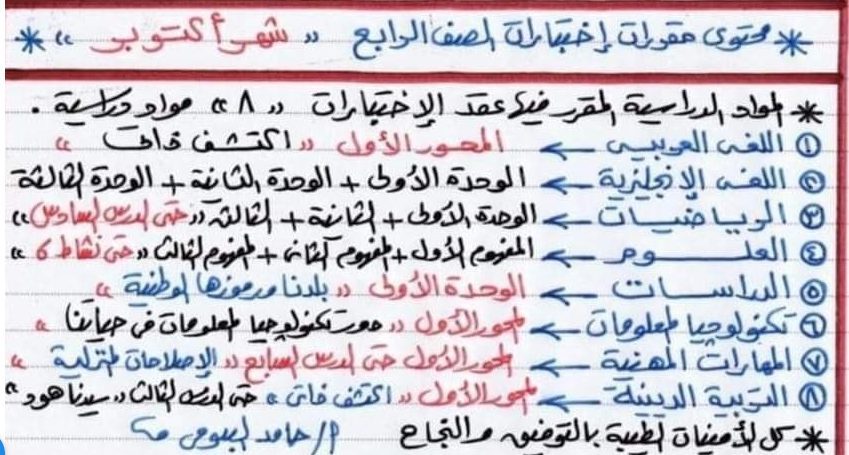 * محتوى مقررات إختبارات الصف الرابع « شهر أكتوبر » *
* المواد الدراسية المقرر فيها عقد الإختبارات « ٨ » مواد دراسية .
① اللغة العربيـــة ← المحور الأول « اكتشف ذاتى »
② اللغة الإنجليزية ← الوحدة الأولى + الوحدة الثانية + الوحدة الثالثة
③ الرياضيـــات ← الوحدة الأولى + الثانية + الثالثة « حتى الدرس السادس »
④ العلــــوم ← المفهوم الأول + المفهوم الثانى + المفهوم الثالث « حتى نشاط 6 »
⑤ الدراســـات ← الوحدة الأولى « بلدنا ورموزها الوطنية »
⑥ تكنولوجيا المعلومات ← المحور الأول « دور تكنولوجيا المعلومات فى حياتنا »
⑦ المهارات المهنية ← المحور الأول حتى الدرس السابع « الإصلاحات المنزلية »
⑧ التربية الدينية ← المحور الأول « اكتشف ذاتى » حتى الدرس الثالث « سيدنا هود »
* كل الأمنيات الطيبة بالتوفيق والنجاح أ/ حامد البيومى